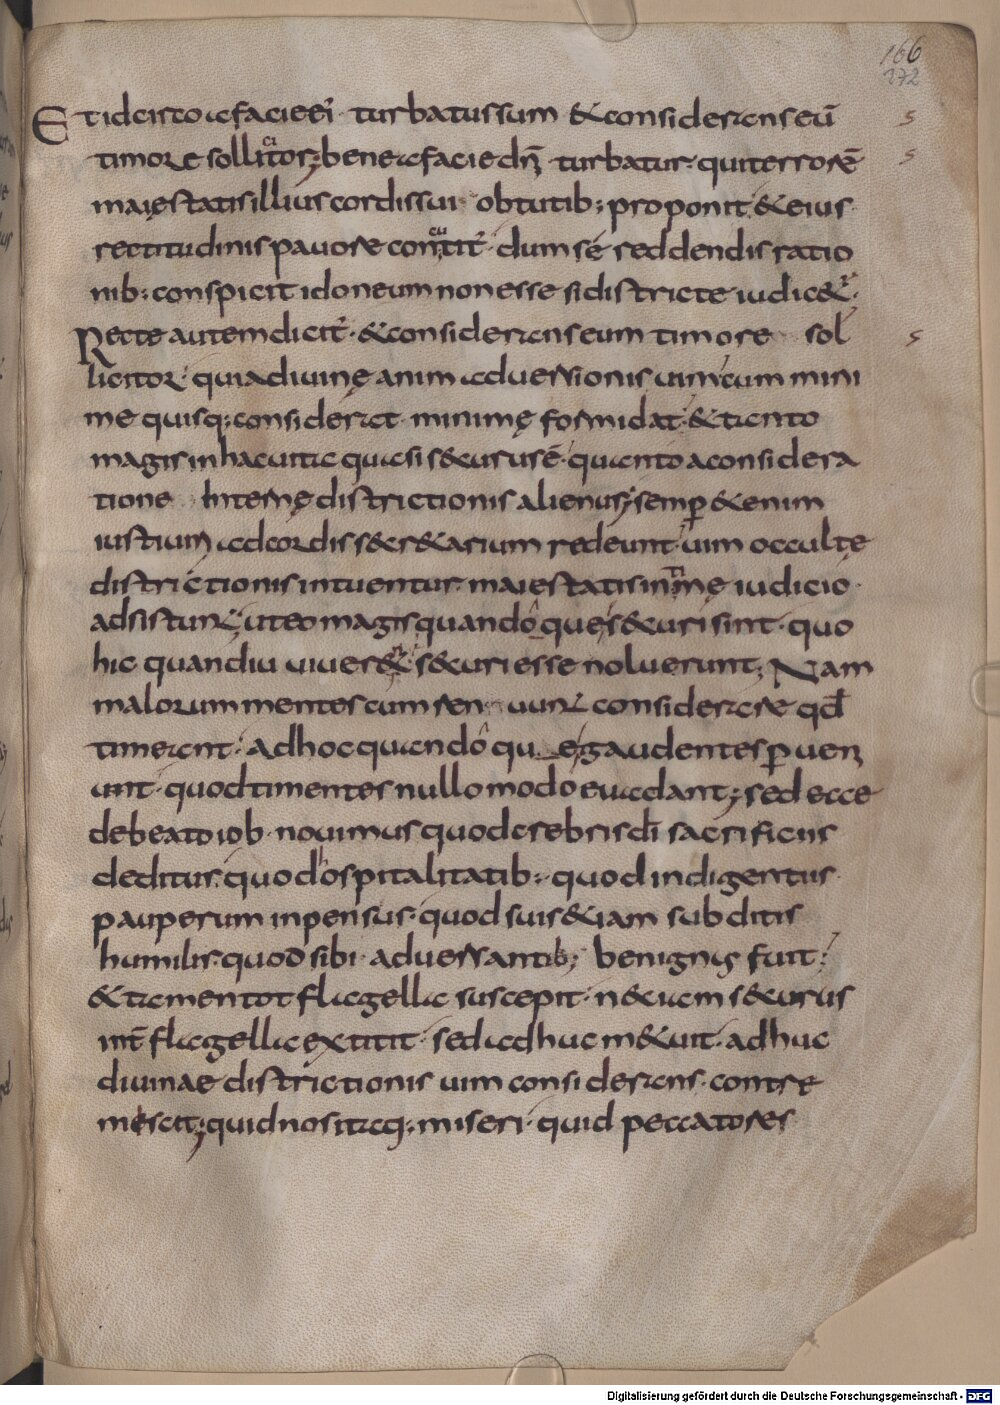 166
272
Et idcirco a facie ei᾽ · turbatus sum & considerans eū
timore sollicitor; bene a facie dn̄i turbatur · qui terrorē
maiestatis illius cordis sui obtutib; proponit · & eius
rectitudinis pavore concutit᾽ · dum se reddendis ratio
nib; conspicit idoneum non esse si districte iudic&ur ·
Recte autem dicit᾽ · & considerans eum timore sol
licitor · quia divinę animadversionis vim cum mini
me quisq; considerat · minimę formidat · & tanto
magis in hac vita quasi securus ē · quanto a considera
tione Internę districtionis alienus; semp & enim
iustium ad cordis secr&arium redeunt · vim occultę
districtionis intuentur · maiestatis intimę iudicio ·
adsistunt; ut eo magis quandoq; securi sint · quo
hic quandiu viver& securi esse noluerunt; Nam
malorum mentes cum considerare qđ
timeant · ad hoc quandoq; gaudentes pveni
unt · quod timentes nullo modo evadant; sed ecce
de beato iob · novimus quod crebris dī sacrificiis
deditur · quod hospitalitatib; · quod indigentiis
pauperum inpensus · quod suis &iam subditis
humilis · quod sibi · adversantib; benignus fuit;
& tamen tot flagella suscepit · n& iam s&urus
int̄ flagella extitit · sed adhuc m&uit · adhuc
divinae districtionis vim considerans · contre
mescit; quid nos itaq; miseri · quid peccatores
Digitalisierung gefördert durch die Deutsche Forschungsgemeinschaft - DFG